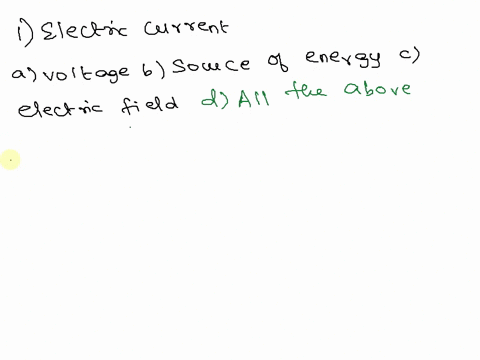 i) Electric current
a) voltage b) Source of energy c)
electric field d) All the above